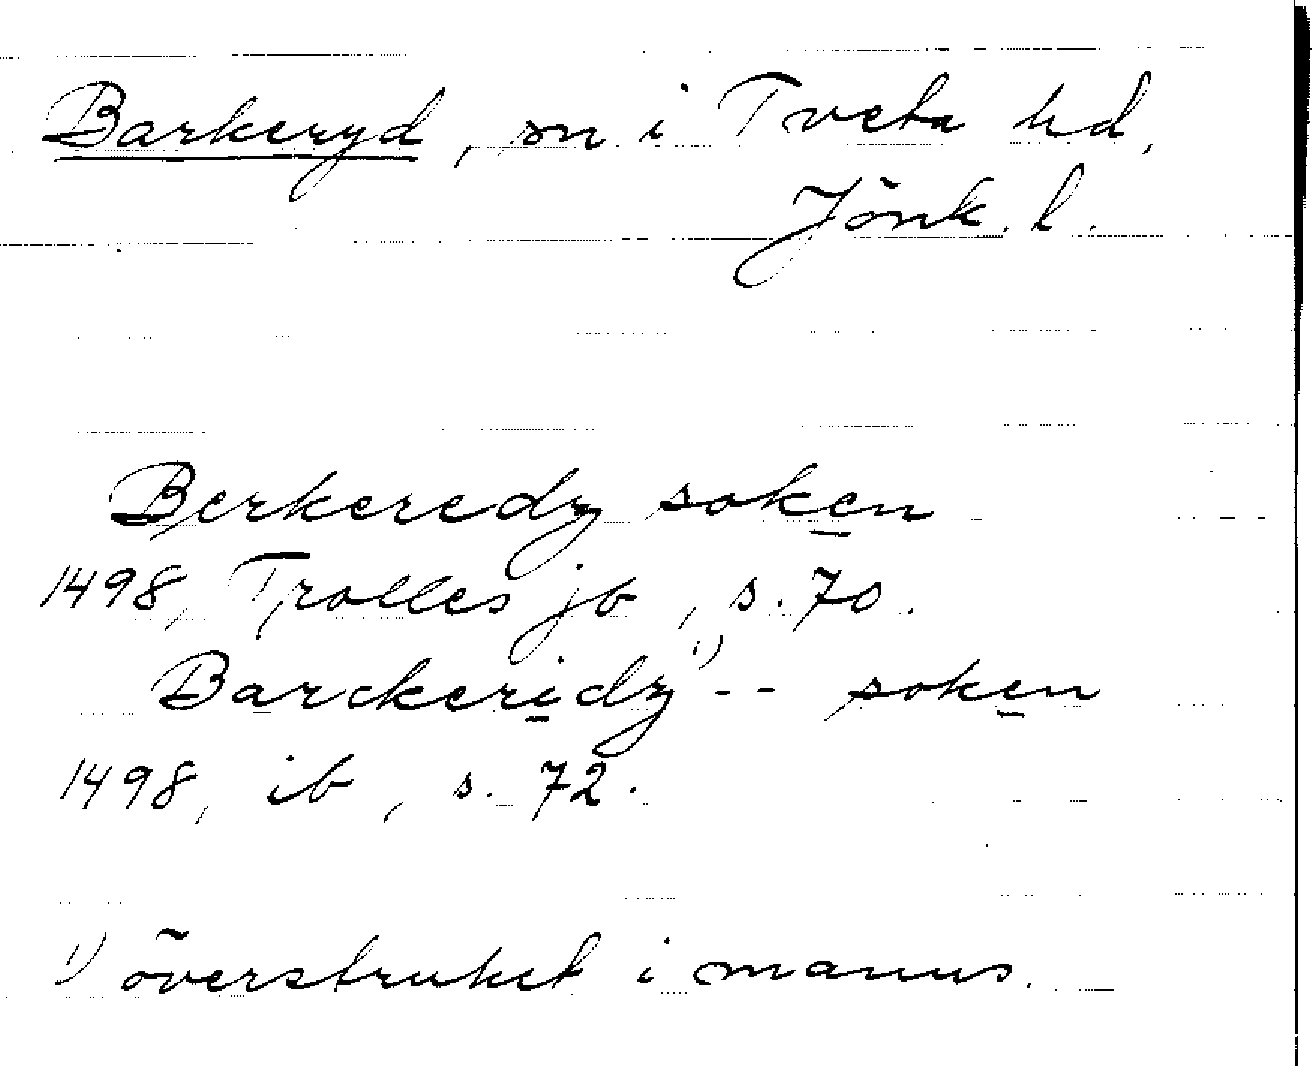 Barkeryd, sn i Tveta hd,
Jönk. l.
Berkeredz soken
1498, Trolles jb, s. 70.
Barckeridz¹⁾ -- soken
1498, ib, s. 72.
¹⁾ överstruket i manus.